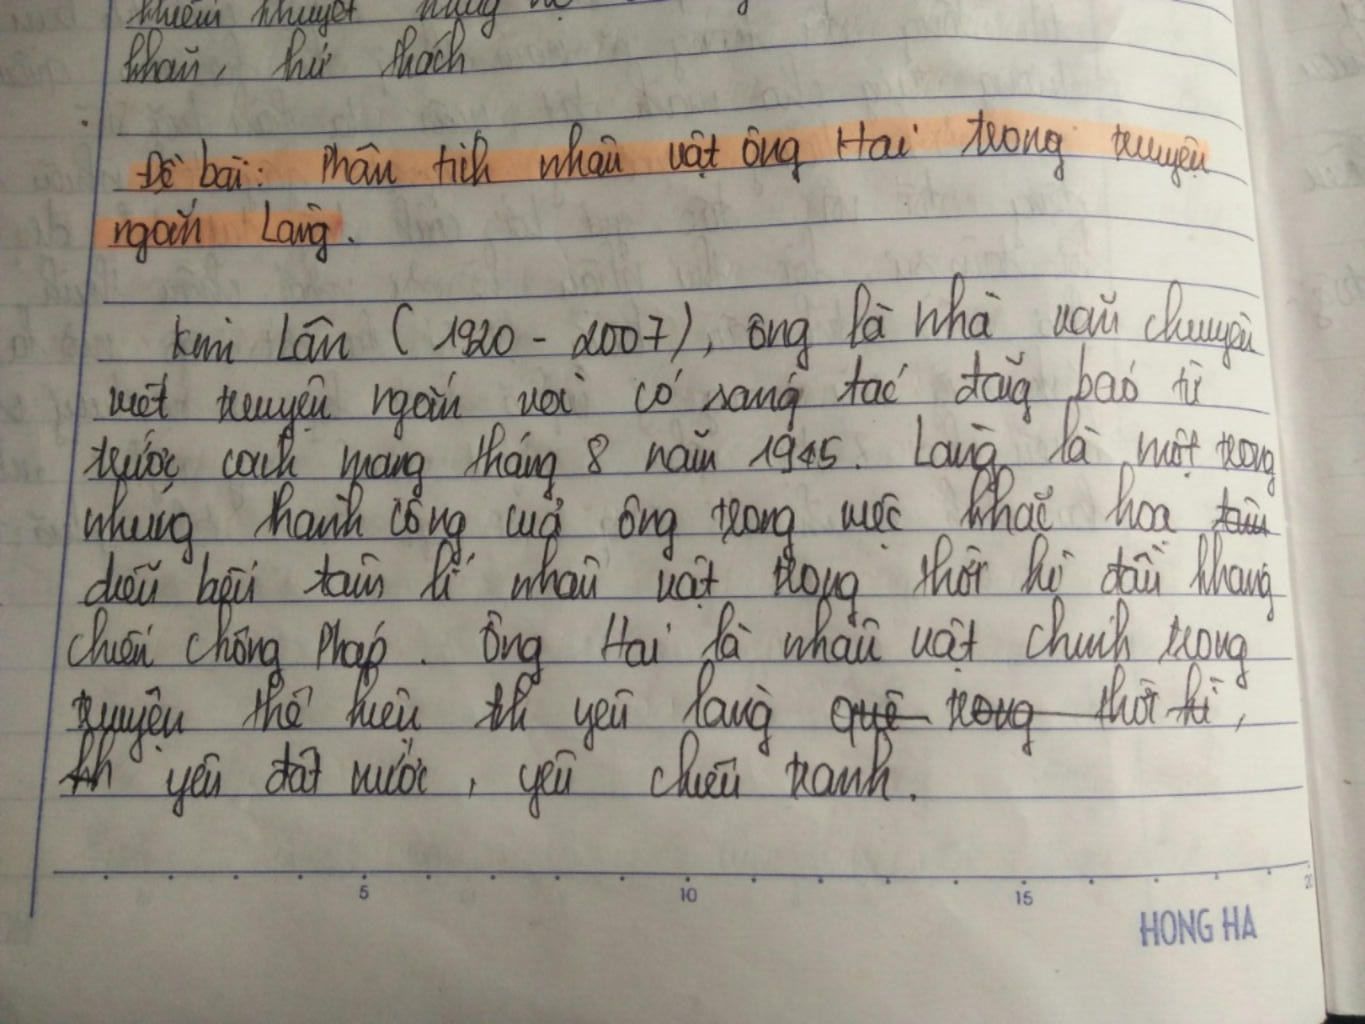 khiếm khuyết
khăn, thử thách
Đề bài: Phân tích nhân vật ông Hai trong truyện
ngắn Làng.
Kim Lân (1920 - 2007), ông là nhà văn chuyên
viết truyện ngắn và có sáng tác đăng báo từ
trước cách mạng tháng 8 năm 1945. Làng là một trong
những thành công của ông trong việc khắc họa tâm
diễn biến tâm lí nhân vật trong thời kì đầu kháng
chiến chống Pháp. Ông Hai là nhân vật chính trong
truyện thể hiện th yêu làng quê trong thời kì,
th yêu đất nước, yêu chiến tranh.
5 10 15
HONG HA